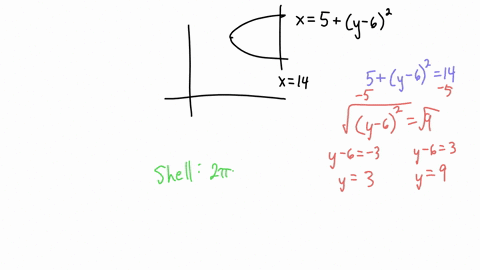 x=5+(y-6)²
x=14
5+(y-6)²=14
-5 -5
√(y-6)²=√9
y-6=-3 y-6=3
y=3 y=9
Shell: 2π